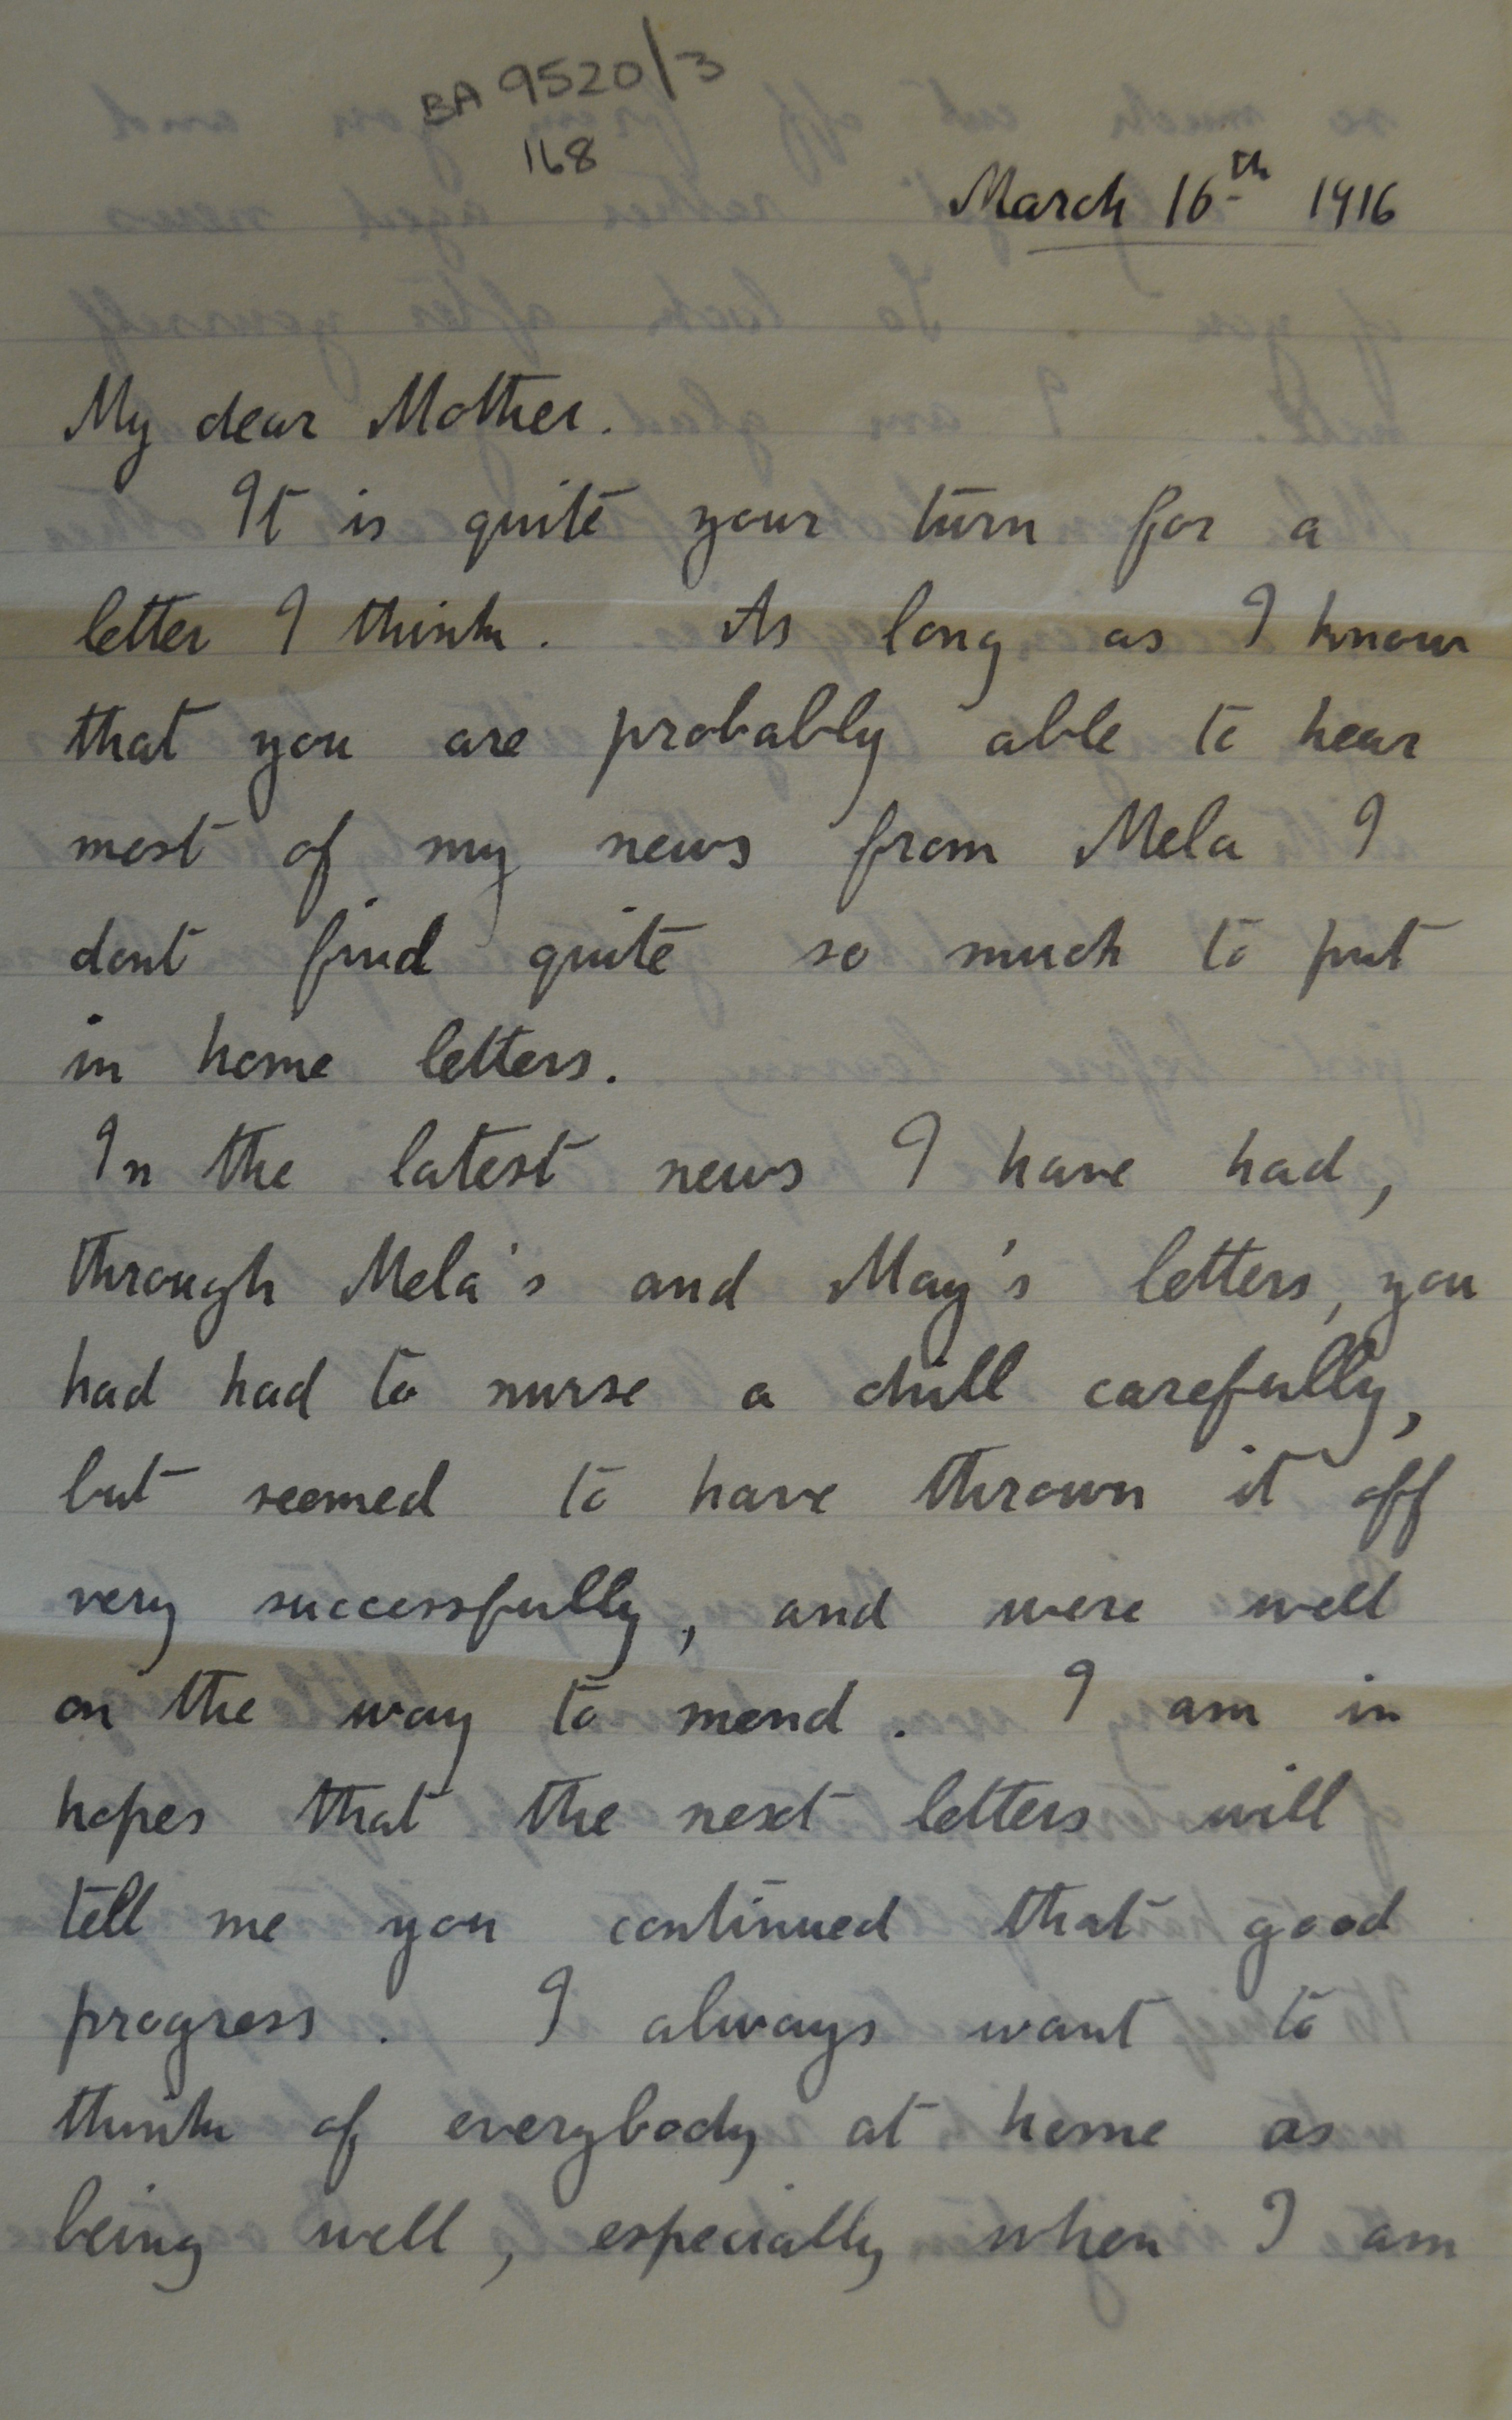 BA 9520/3
168
March 16th 1916
My dear Mother.
It is quite your turn for a
letter I think. As long as I know
that you are probably able to hear
most of my news from Mela I
dont find quite so much to put
in home letters.
In the latest news I have had,
through Mela's and May's letters, you
had had to nurse a chill carefully,
but seemed to have thrown it off
very successfully, and were well
on the way to mend. I am in
hopes that the next letters will
tell me you continued that good
progress. I always want to
think of everybody at home as
being well, especially when I am